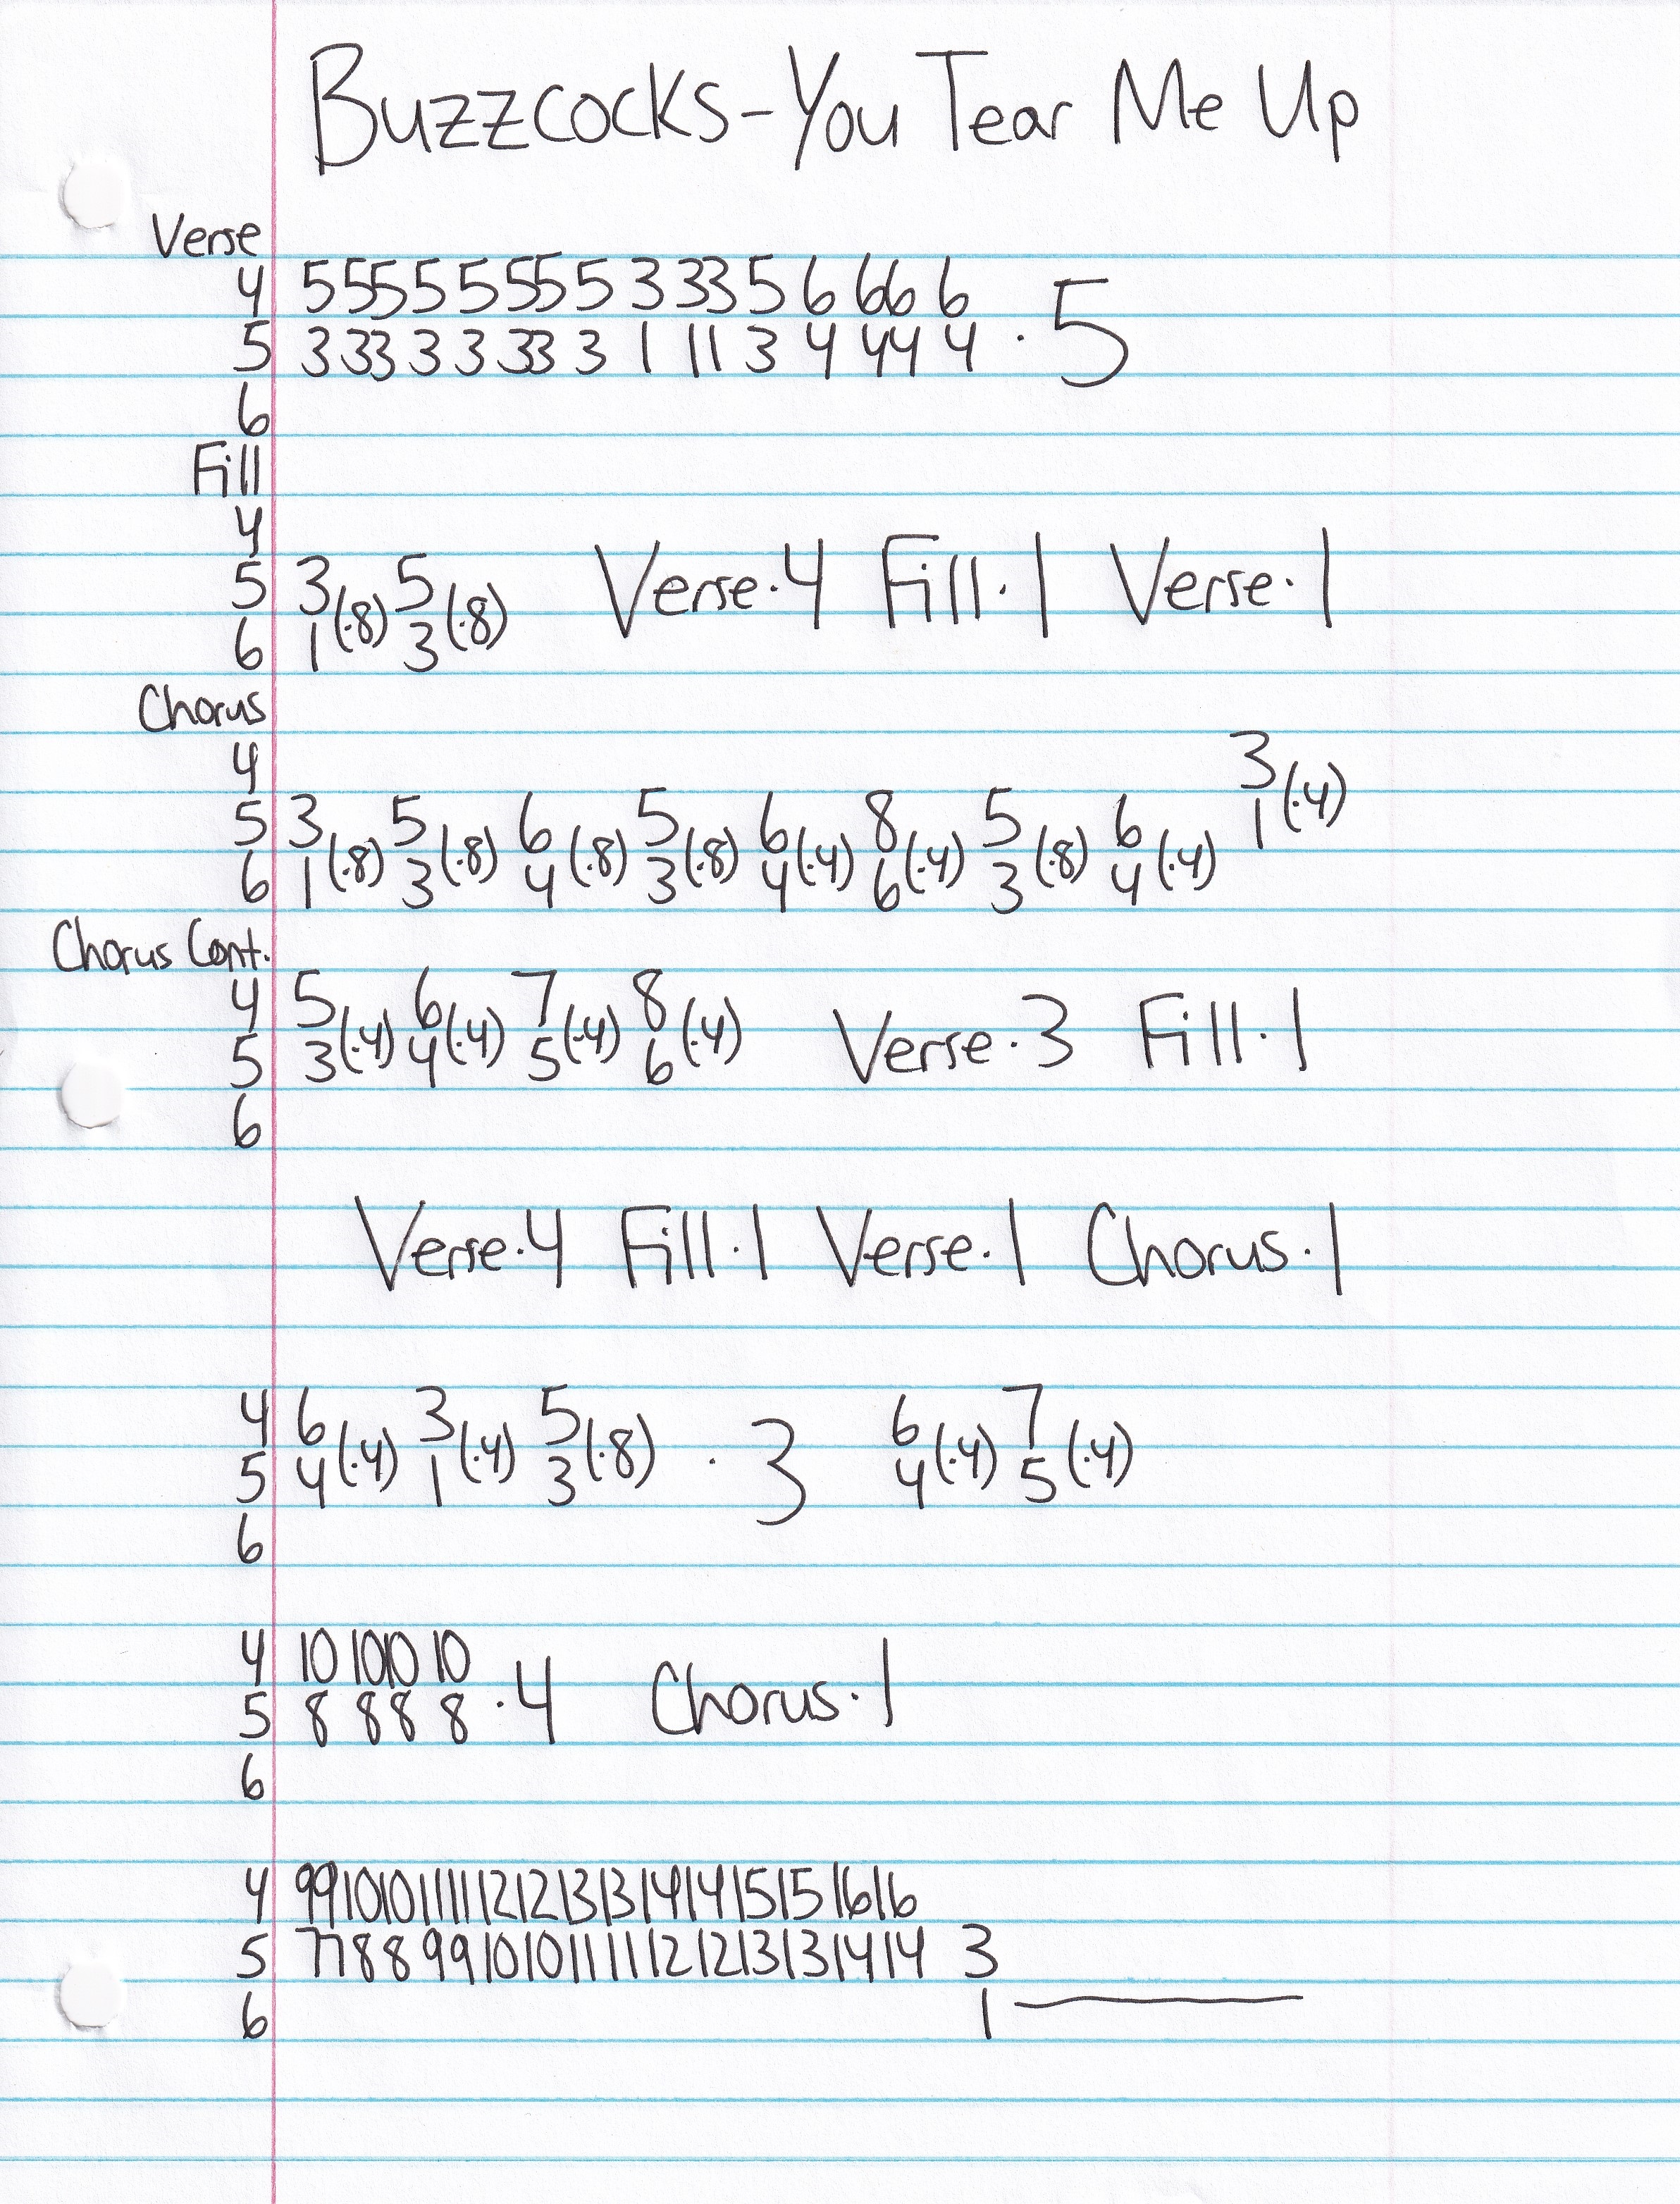 Buzzcocks-You Tear Me Up
Verse
4 5 55 5 5 55 5 3 33 5 6 66 6
5 3 33 3 3 33 3 1 11 3 4 44 4 · 5
6
Fill
4
5 3 5 Verse·4 Fill·1 Verse·1
(·8) (·8)
6 1 3
Chorus
4 3
(·4)
5 3 5 6 5 6 8 5 6 1
(·8) (·8) (·8) (·8) (·4) (·4) (·8) (·4)
6 1 3 4 3 4 6 3 4
Chorus Cont.
4 5 6 7 8
(·4) (·4) (·4) (·4) Verse·3 Fill·1
5 3 4 5 6
6
Verse·4 Fill·1 Verse·1 Chorus·1
4 6 3 5 6 7
(·4) (·4) (·8) · 3 (·4) (·4)
5 4 1 3 4 5
6
4 10 1010 10
5 8 88 8 ·4 Chorus·1
6
4 991010111112121313141415151616
5 77889910101111121213131414 3
6 1